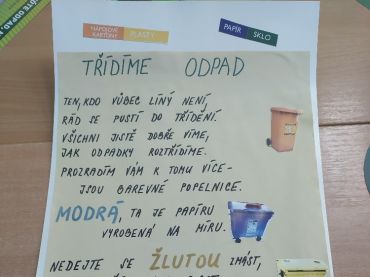 NÁPOJOVÉ KARTONY
PLASTY
PAPÍR
SKLO
TŘÍDÍME ODPAD
TEN, KDO VŮBEC LÍNÝ NENÍ,
RÁD SE PUSTÍ DO TŘÍDĚNÍ.
VŠICHNI JISTĚ DOBŘE VÍME,
JAK ODPADKY ROZTŘÍDÍME.
PROZRADÍM VÁM K TOMU VÍCE-
JSOU BAREVNÉ POPELNICE.
MODRÁ, TA JE PAPÍRU
VYROBENÁ NA MÍRU.
NEDEJTE SE ŽLUTOU ZMÁST,